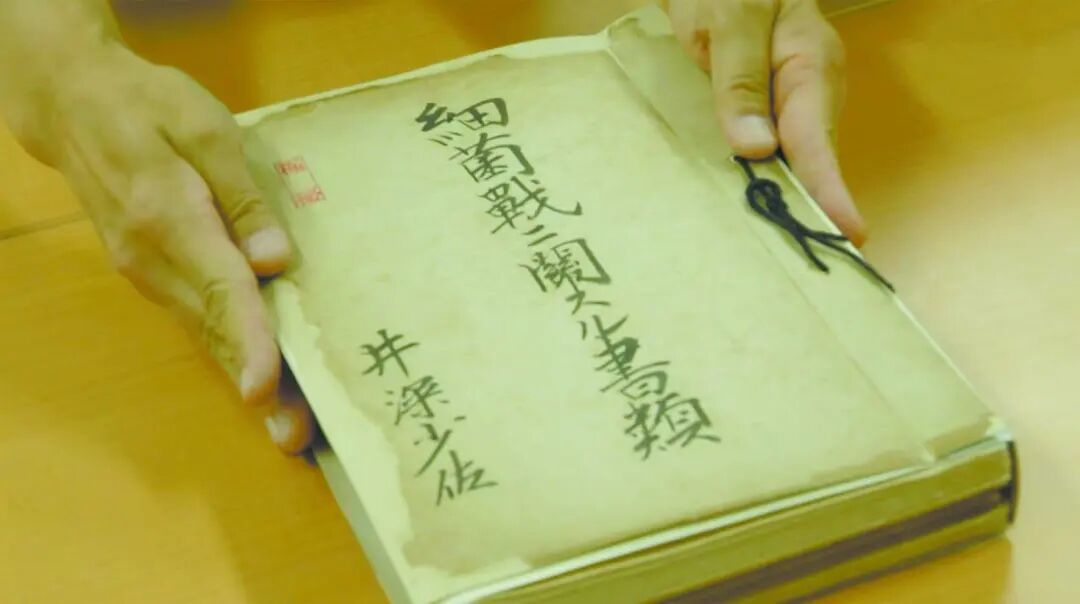 細菌戰ニ關スル書類
井深少佐